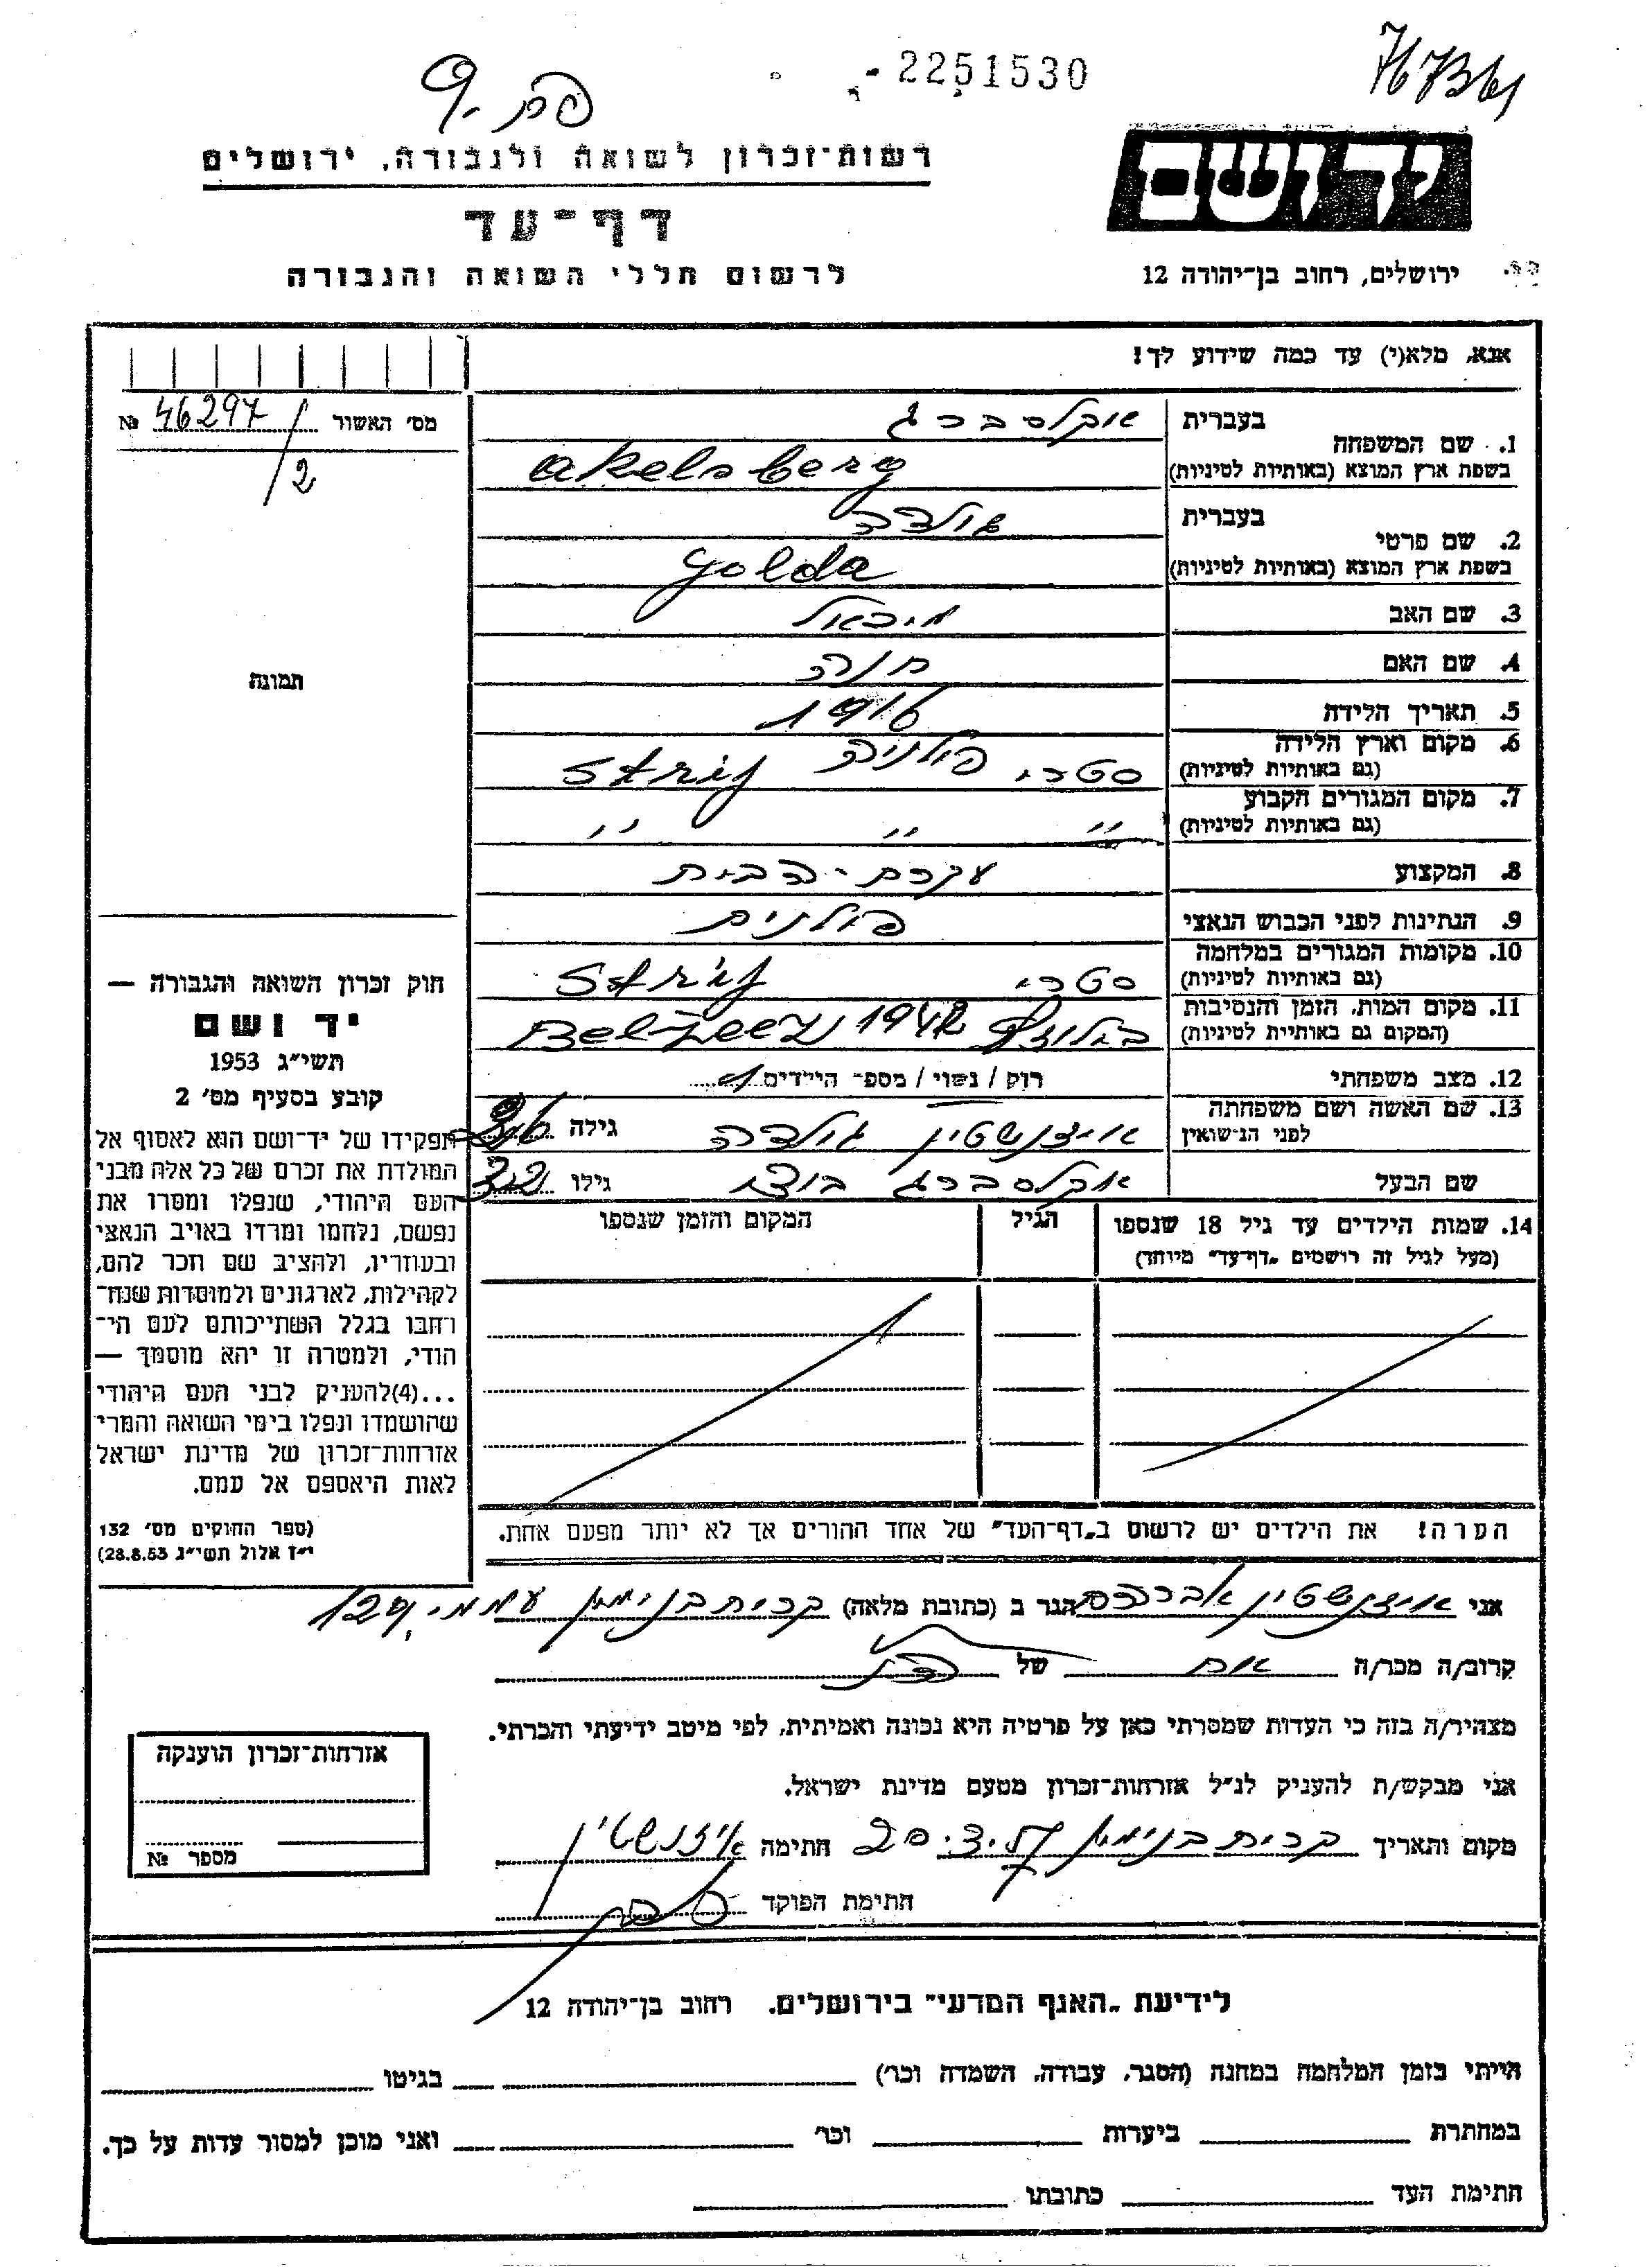 2251530
פת. 9
יד ושם
רשות־זכרון לשואה ולגבורה, ירושלים
דף־עד
ירושלים, רחוב בן־יהודה 12
לרשום חללי השואה והגבורה
אנא, מלא(י) עד כמה שידוע לך!
מס׳ האשור 46297 №
/2
תמונה
1. שם המשפחה
בעברית אקלסברג
בשפת ארץ המוצא (באותיות לטיניות) akelsberg
2. שם פרטי
בעברית גולדה
בשפת ארץ המוצא (באותיות לטיניות) golda
3. שם האב מיכאל
4. שם האם חנה
5. תאריך הלידה 1916
6. מקום וארץ הלידה
(גם באותיות לטיניות) סטרי פולניה Strij
7. מקום המגורים הקבוע
(גם באותיות לטיניות) ״ ״ ״
8. המקצוע עקרת־הבית
9. הנתינות לפני הכבוש הנאצי פולנית
10. מקומות המגורים במלחמה
(גם באותיות לטיניות) סטרי Strij
11. מקום המות, הזמן והנסיבות
(המקום גם באותיות לטיניות) 1942
12. מצב משפחתי רווק / נשוי / מספר הילדים
13. שם האשה ושם משפחתה
לפני הנישואין איזנשטין גולדה גילה 26
שם הבעל אקלסברג גילו 32
14. שמות הילדים עד גיל 18 שנספו הגיל המקום והזמן שנספו
(מעל לגיל זה רושמים „דף־עד״ מיוחד)
הערה! את הילדים יש לרשום ב„דף־העד״ של אחד ההורים אך לא יותר מפעם אחת.
חוק זכרון השואה והגבורה —
יד ושם
תשי״ג 1953
קובע בסעיף מס׳ 2
תפקידו של יד־ושם הוא לאסוף אל
המולדת את זכרם של כל אלה מבני
העם היהודי, שנפלו ומסרו את
נפשם, נלחמו ומרדו באויב הנאצי
ובעוזריו, ולהציב שם וזכר להם,
לקהילות, לארגונים ולמוסדות שנח־
רחבו בגלל השתייכותם לעם הי־
הודי, ולמטרה זו יהא מוסמך —
...(4) להעניק לבני העם היהודי
שהושמדו ונפלו בימי השואה והמרי
אזרחות־זכרון של מדינת ישראל
לאות היאספם אל עמם.
(ספר החוקים מס׳ 132
י״ז אלול תשי״ג 28.8.53)
אני איזנשטין אברהם הגר ב (כתובת מלאה) קרית בנימין עממי 129
קרוב/ה מכר/ה אח של
מצהיר/ה בזה כי העדות שמסרתי כאן על פרטיה היא נכונה ואמיתית, לפי מיטב ידיעתי והכרתי.
אני מבקש/ת להעניק לנ״ל אזרחות־זכרון מטעם מדינת ישראל.
מקום ותאריך קרית בנימין 20.3.57 חתימה איזנשטין
חתימת הפוקד
אזרחות־זכרון הוענקה
מספר №
לידיעת „האגף המדעי״ בירושלים. רחוב בן־יהודה 12
הייתי בזמן המלחמה במחנה (הסגר, עבודה, השמדה וכר׳) בגיטו
במחתרת ביערות וכר׳ ואני מוכן למסור עדות על כך.
חתימת העד כתובתו